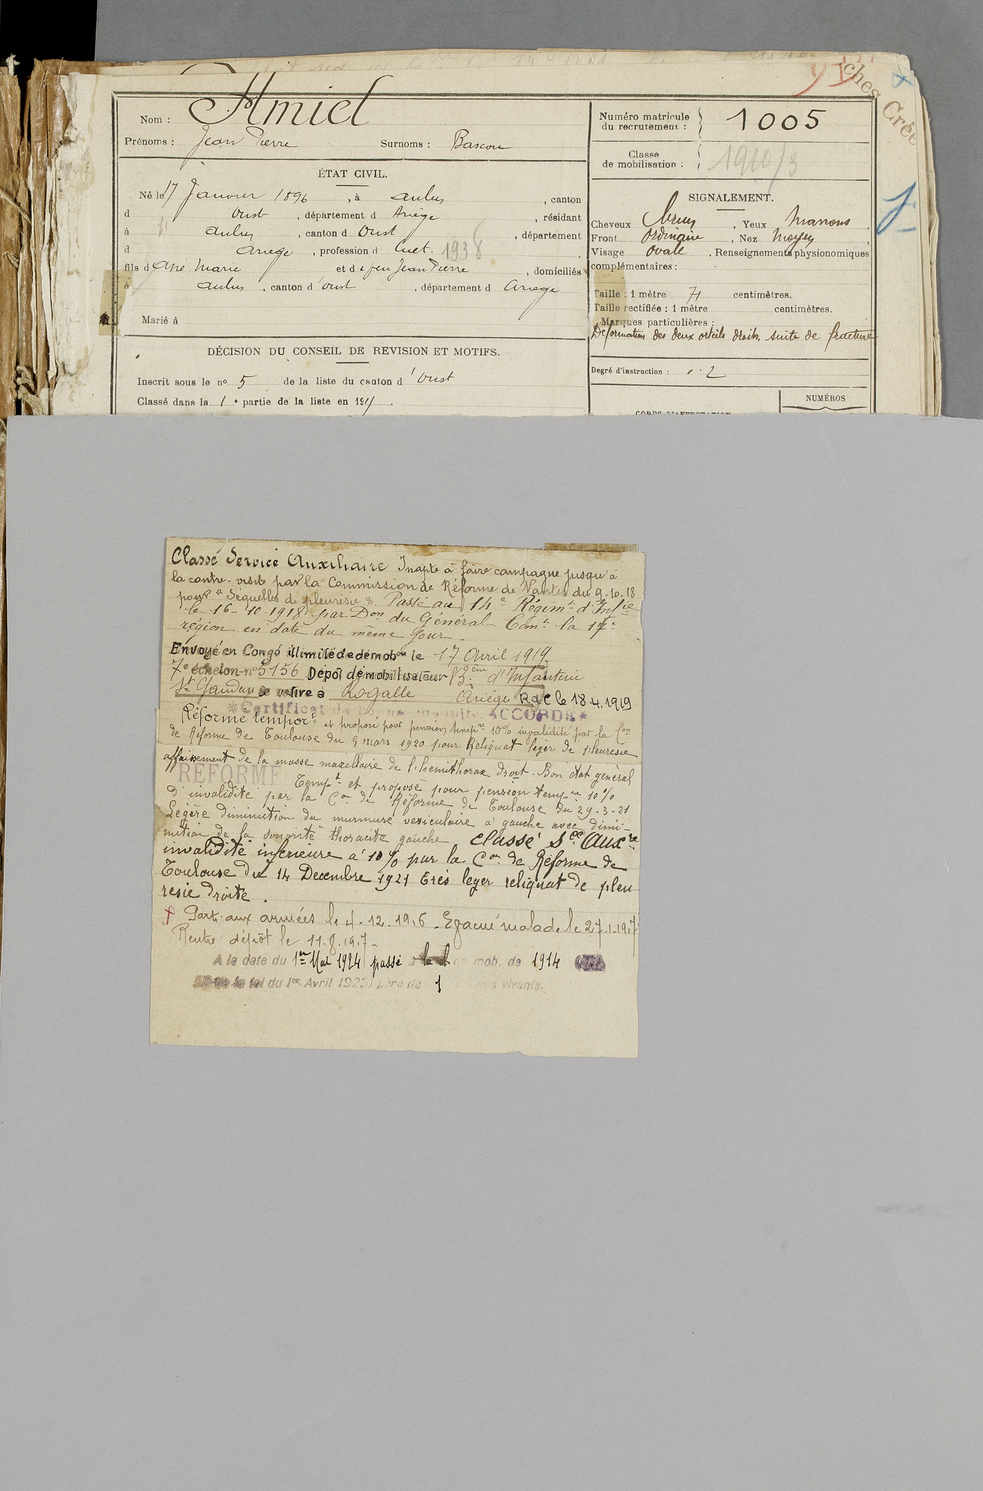 ches Crée
Nom : Amiel
Prénoms : Jean Pierre Surnoms : Bascou
Numéro matricule du recrutement : 1005
Classe de mobilisation : 1910/3
ÉTAT CIVIL.
Né le 17 Janvier 1896, à Aulus, canton
d Oust, département d Ariège, résidant
à Aulus, canton d Oust, département
d Ariege, profession d Cult. 1938
fils d Marie et d feu Jean Pierre, domiciliés
à Aulus, canton d'Oust, département d Ariege
Marié à
SIGNALEMENT.
Cheveux, Yeux Marrons
Front Ordinaire, Nez Moyen
Visage Ovale, Renseignements physionomiques
complémentaires :
Taille : 1 mètre 71 centimètres.
Taille rectifiée : 1 mètre centimètres.
Marques particulières :
Déformation des deux orteils droits, suite de fracture
Degré d'instruction : 2
NUMÉROS
CORPS D'AFFECTATION
DÉCISION DU CONSEIL DE REVISION ET MOTIFS.
Inscrit sous le no 5 de la liste du canton d'Oust
Classé dans la 1e partie de la liste en 191
Classé Service Auxiliaire Inapte à faire campagne jusqu'à
la contre-visite par la Commission de Réforme de Nantes du 9-10-18
pour "Séquelles de pleurésie". Passé au 14e Régimt d'Infie
le 16-10-1918 par Don du Général Comt la 17e
région en date du même jour.
Envoyé en Congé illimité de démobon le 17 Avril 1919
7e échelon no 5156 Dépôt démobilisateur d'Infanterie
St Gaudens se retire à Rogalle Ariège R.d.C le 18.4.1919
*Certificat de bonne conduite ACCORDÉ*
Réformé temporre et proposé pour pension tempre 10% invalidité par la Con
de Réforme de Toulouse du 9 mars 1920 pour Reliquat léger de pleuresie
affaissement de la masse maxillaire de l'hemithorax droit. Bon état general
RÉFORMÉ Tempt et proposé pour pension tempre 10%
d'invalidité par la Con de Réforme de Toulouse du 24-3-21
Légère diminution du murmure vésiculaire à gauche avec dimi-
nution de la sonorité thoracite gauche Classé Sce Auxre
invalidité inferieure à 10% par la Con de Réforme de
Toulouse du 14 Decembre 1921 Très leger reliquat de pleu
resie droite.
† Parti aux armées le 4.12.1916. Evacué malade le 27.1.1917
Rentre dépôt le 11.8.1917
A la date du 1er Mai 1924 passé à la cl de mob. de 1914
de la loi du 1er Avril 1923) père de 1 enfants vivants.